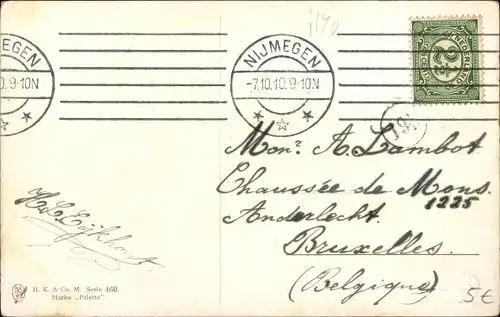 1140
NIJMEGEN
0.9-10N
NIJMEGEN
-7.10.10.9-10N
NEDERLAND
2½
19
Monr. A. Lambot
Chaussée de Mons.
1225
Anderlecht.
Bruxelles.
(Belgique)
H. K. & Co. M. Serie 460.
Marke „Palette"
5€